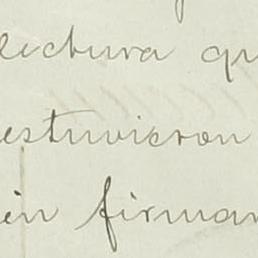 lectura qu
estuvieron
én firman